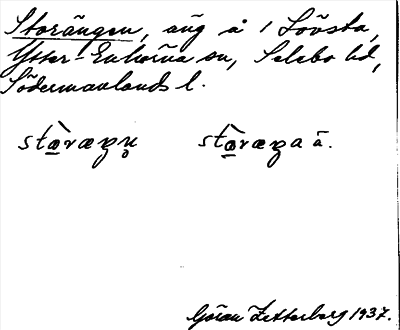 Storängen, äng å 1 Lövsta,
Ytter-Enhörna sn, Selebo hd,
Södermanlands l.
stɑ̱̀ræŋn̥ stɑ̱̀ræŋa ä.
Göran Zetterberg 1937.